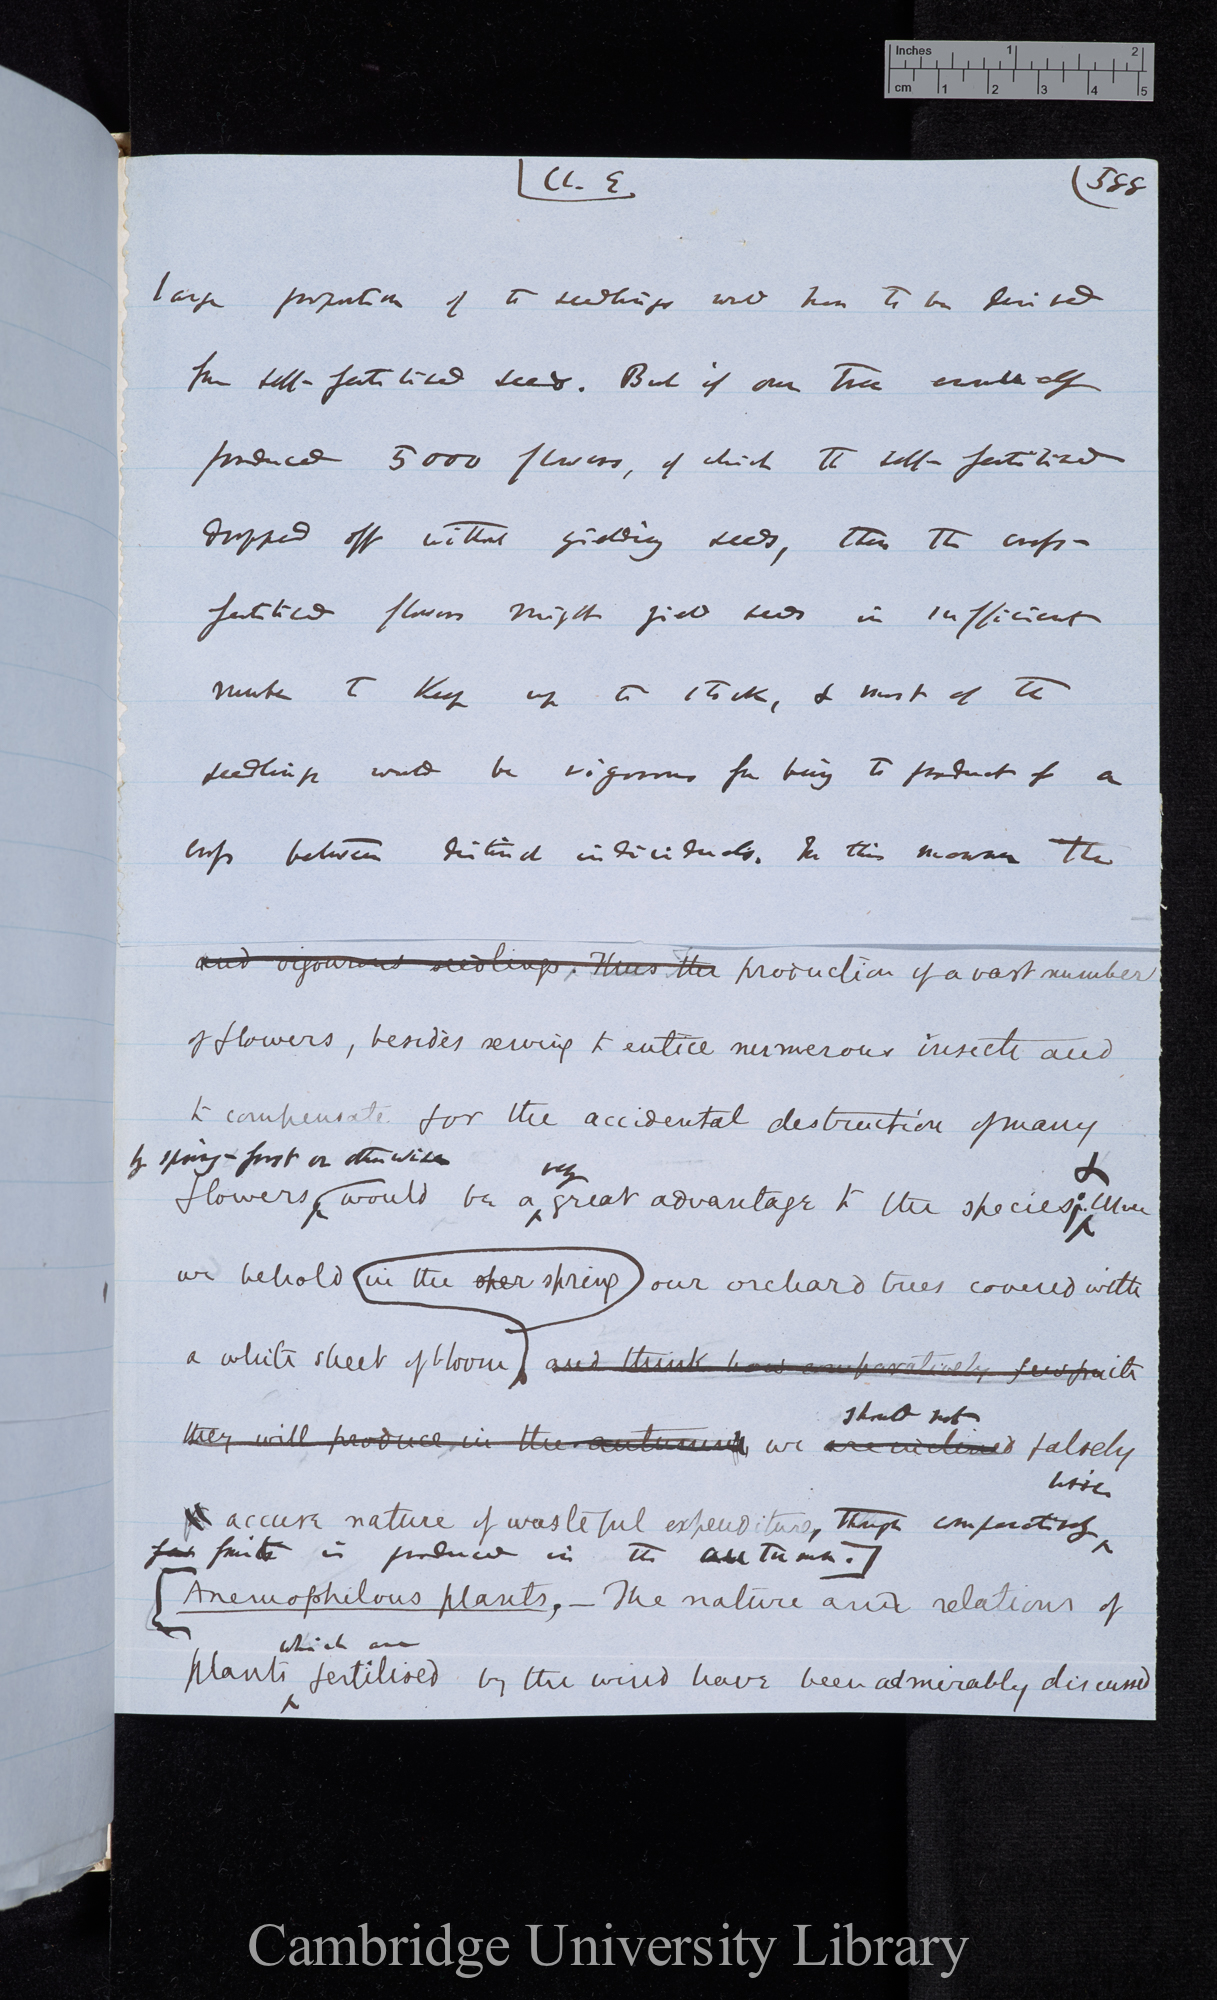 Inches 1 2
cm 1 2 3 4 5
Ch. 9.
(588
large proportion of the seedlings would have to be derived
from self-fertilised seeds. But if our tree annually
produced 5000 flowers, of which the self-fertilised
dropped off without yielding seeds, then the cross-
fertilised flowers might yield seeds in sufficient
number to keep up the stock, & most of the
seedlings would be vigorous from being the product of a
cross between distinct individuals. In this manner the
and vigourous seedlings. Thus the production of a vast number
of flowers, besides serving to entice numerous insects and
to compensate for the accidental destruction of many
by spring-frost or otherwise very &
flowers, would be a great advantage to the species; when
we behold in the sher spring our orchard trees covered with
a white sheet of bloom, and think how comparatively few fruits
should not
they will produce in the autumn we are inclined falsely
little
accuse nature of wasteful expenditure, though comparatively
few fruits is produced in the autumn.]
[Anemophilous plants. — The nature and relations of
which are
plants fertilised by the wind have been admirably discussed
Cambridge University Library